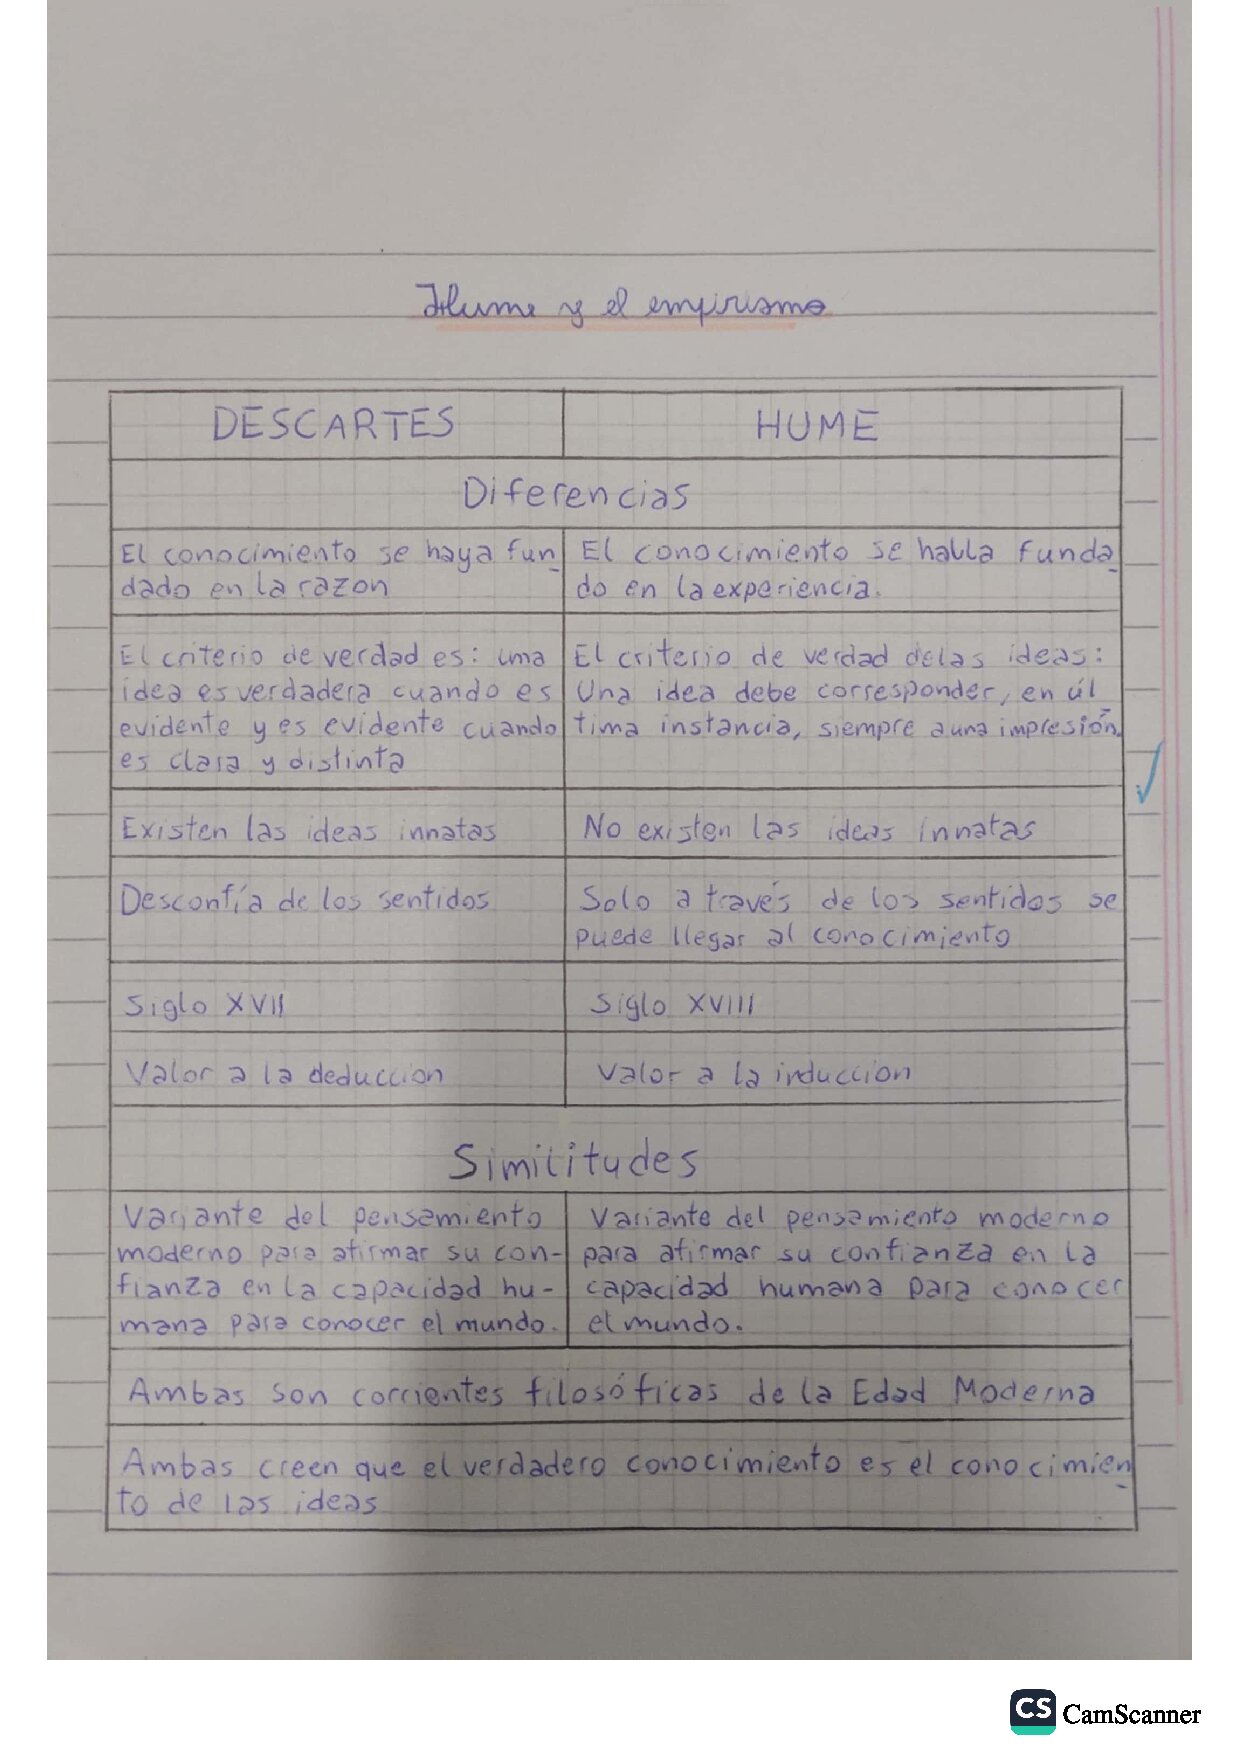 Hume y el empirismo
DESCARTES
HUME
Diferencias
El conocimiento se haya fun
dado en la razon
El conocimiento se halla funda
do en la experiencia.
El criterio de verdad es: una
idea es verdadera cuando es
evidente y es evidente cuando
es clara y distinta
El criterio de verdad de las ideas:
Una idea debe corresponder, en úl
tima instancia, siempre a una impresión.
Existen las ideas innatas
No existen las ideas innatas
Desconfía de los sentidos
Solo a través de los sentidos se
puede llegar al conocimiento
Siglo XVII
Siglo XVIII
Valor a la deduccion
Valor a la induccion
Similitudes
Variante del pensamiento
moderno para afirmar su con-
fianza en la capacidad hu-
mana para conocer el mundo.
Variante del pensamiento moderno
para afirmar su confianza en la
capacidad humana para conocer
el mundo.
Ambas son corrientes filosóficas de la Edad Moderna
Ambas creen que el verdadero conocimiento es el conocimien
to de las ideas
CS CamScanner